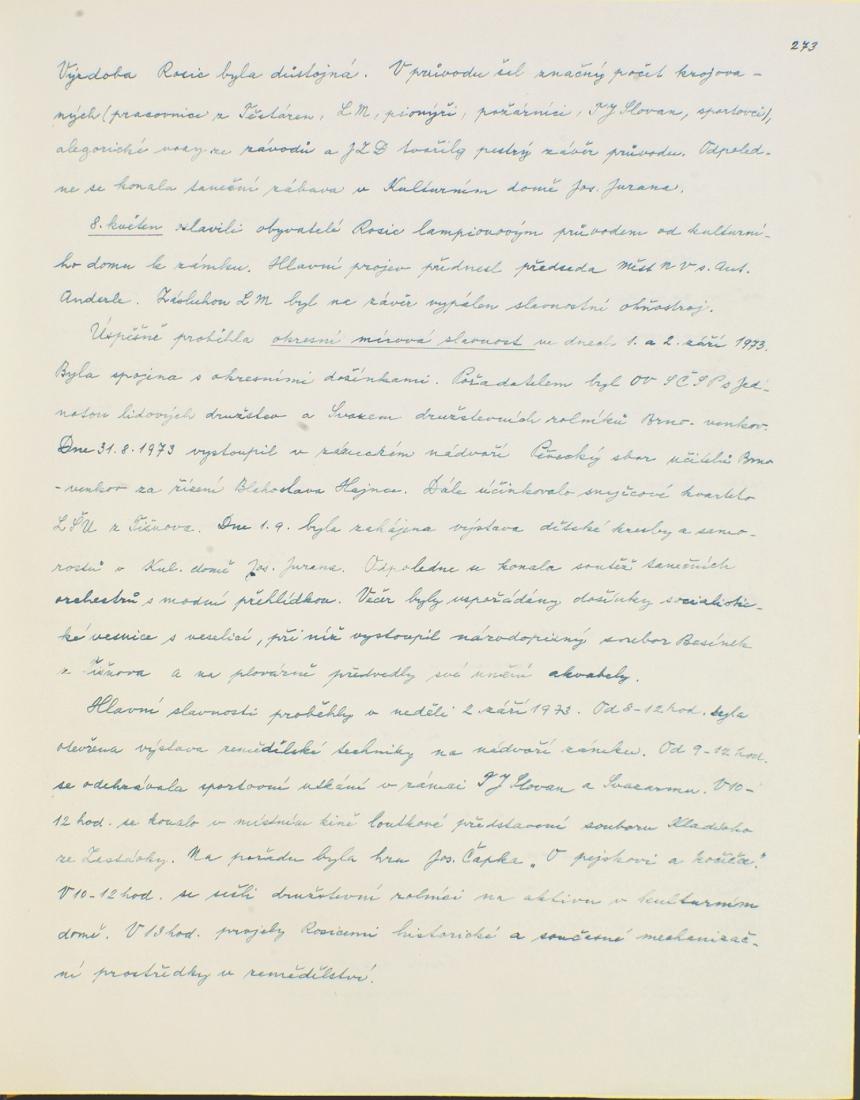 273
Výzdoba Rosic byla důstojná. V průvodu šel značný počet krojova-
ných (pracovnice z Těstáren, LM, pionýři, požárníci, TJ Slovan, sportovci),
alegorické vozy ze závodů a JZD tvořily pestrý závěr průvodu. Odpoled-
ne se konala taneční zábava v Kulturním domě Jos. Jurana.
8. květen slavili obyvatelé Rosic lampionovým průvodem od kulturní-
ho domu k zámku. Hlavní projev přednesl předseda Měst N V s. Ant.
Anderle. Zásluhou LM byl na závěr vypálen slavnostní ohňostroj.
Úspěšně proběhla okresní mírová slavnost ve dnech 1. a 2. září 1973.
Byla spojena s okresními dožínkami. Pořadatelem byl OV SČSP s Jed-
notou lidových družstev a Svazem družstevních rolníků Brno-venkov.
Dne 31.8.1973 vystoupil v zámeckém nádvoří Pěvecký sbor učitelů Brno
-venkov za řízení Blahoslava Hajnce. Dále účinkovalo smyčcové kvarteto
LŠU z Tišnova. Dne 1.9. byla zahájena výstava dětské kresby a samo-
rostů v Kul. domě Jos. Jurana. Odpoledne se konala soutěž tanečních
orchestrů s modní přehlídkou. Večer byly uspořádány dožínky socialistic-
ké vesnice s veselicí, při níž vystoupil národopisný soubor Besének
z Tišnova a na plovárně předvedly své umění akvabely.
Hlavní slavnosti proběhly v neděli 2. září 1973. Od 8-12 hod. byla
otevřena výstava zemědělské techniky na nádvoří zámku. Od 9-12 hod.
se odehrávala sportovní utkání v rámci TJ Slovan a Svazarmu. V 10-
12 hod. se konalo v místním kině loutkové představení souboru Kladivko
ze Zastávky. Na pořadu byla hra Jos. Čapka „O pejskovi a kočičce."
V 10-12 hod. se sešli družstevní rolníci na aktivu v kulturním
domě. V 13 hod. projely Rosicemi historické a současné mechanizač-
ní prostředky v zemědělství.